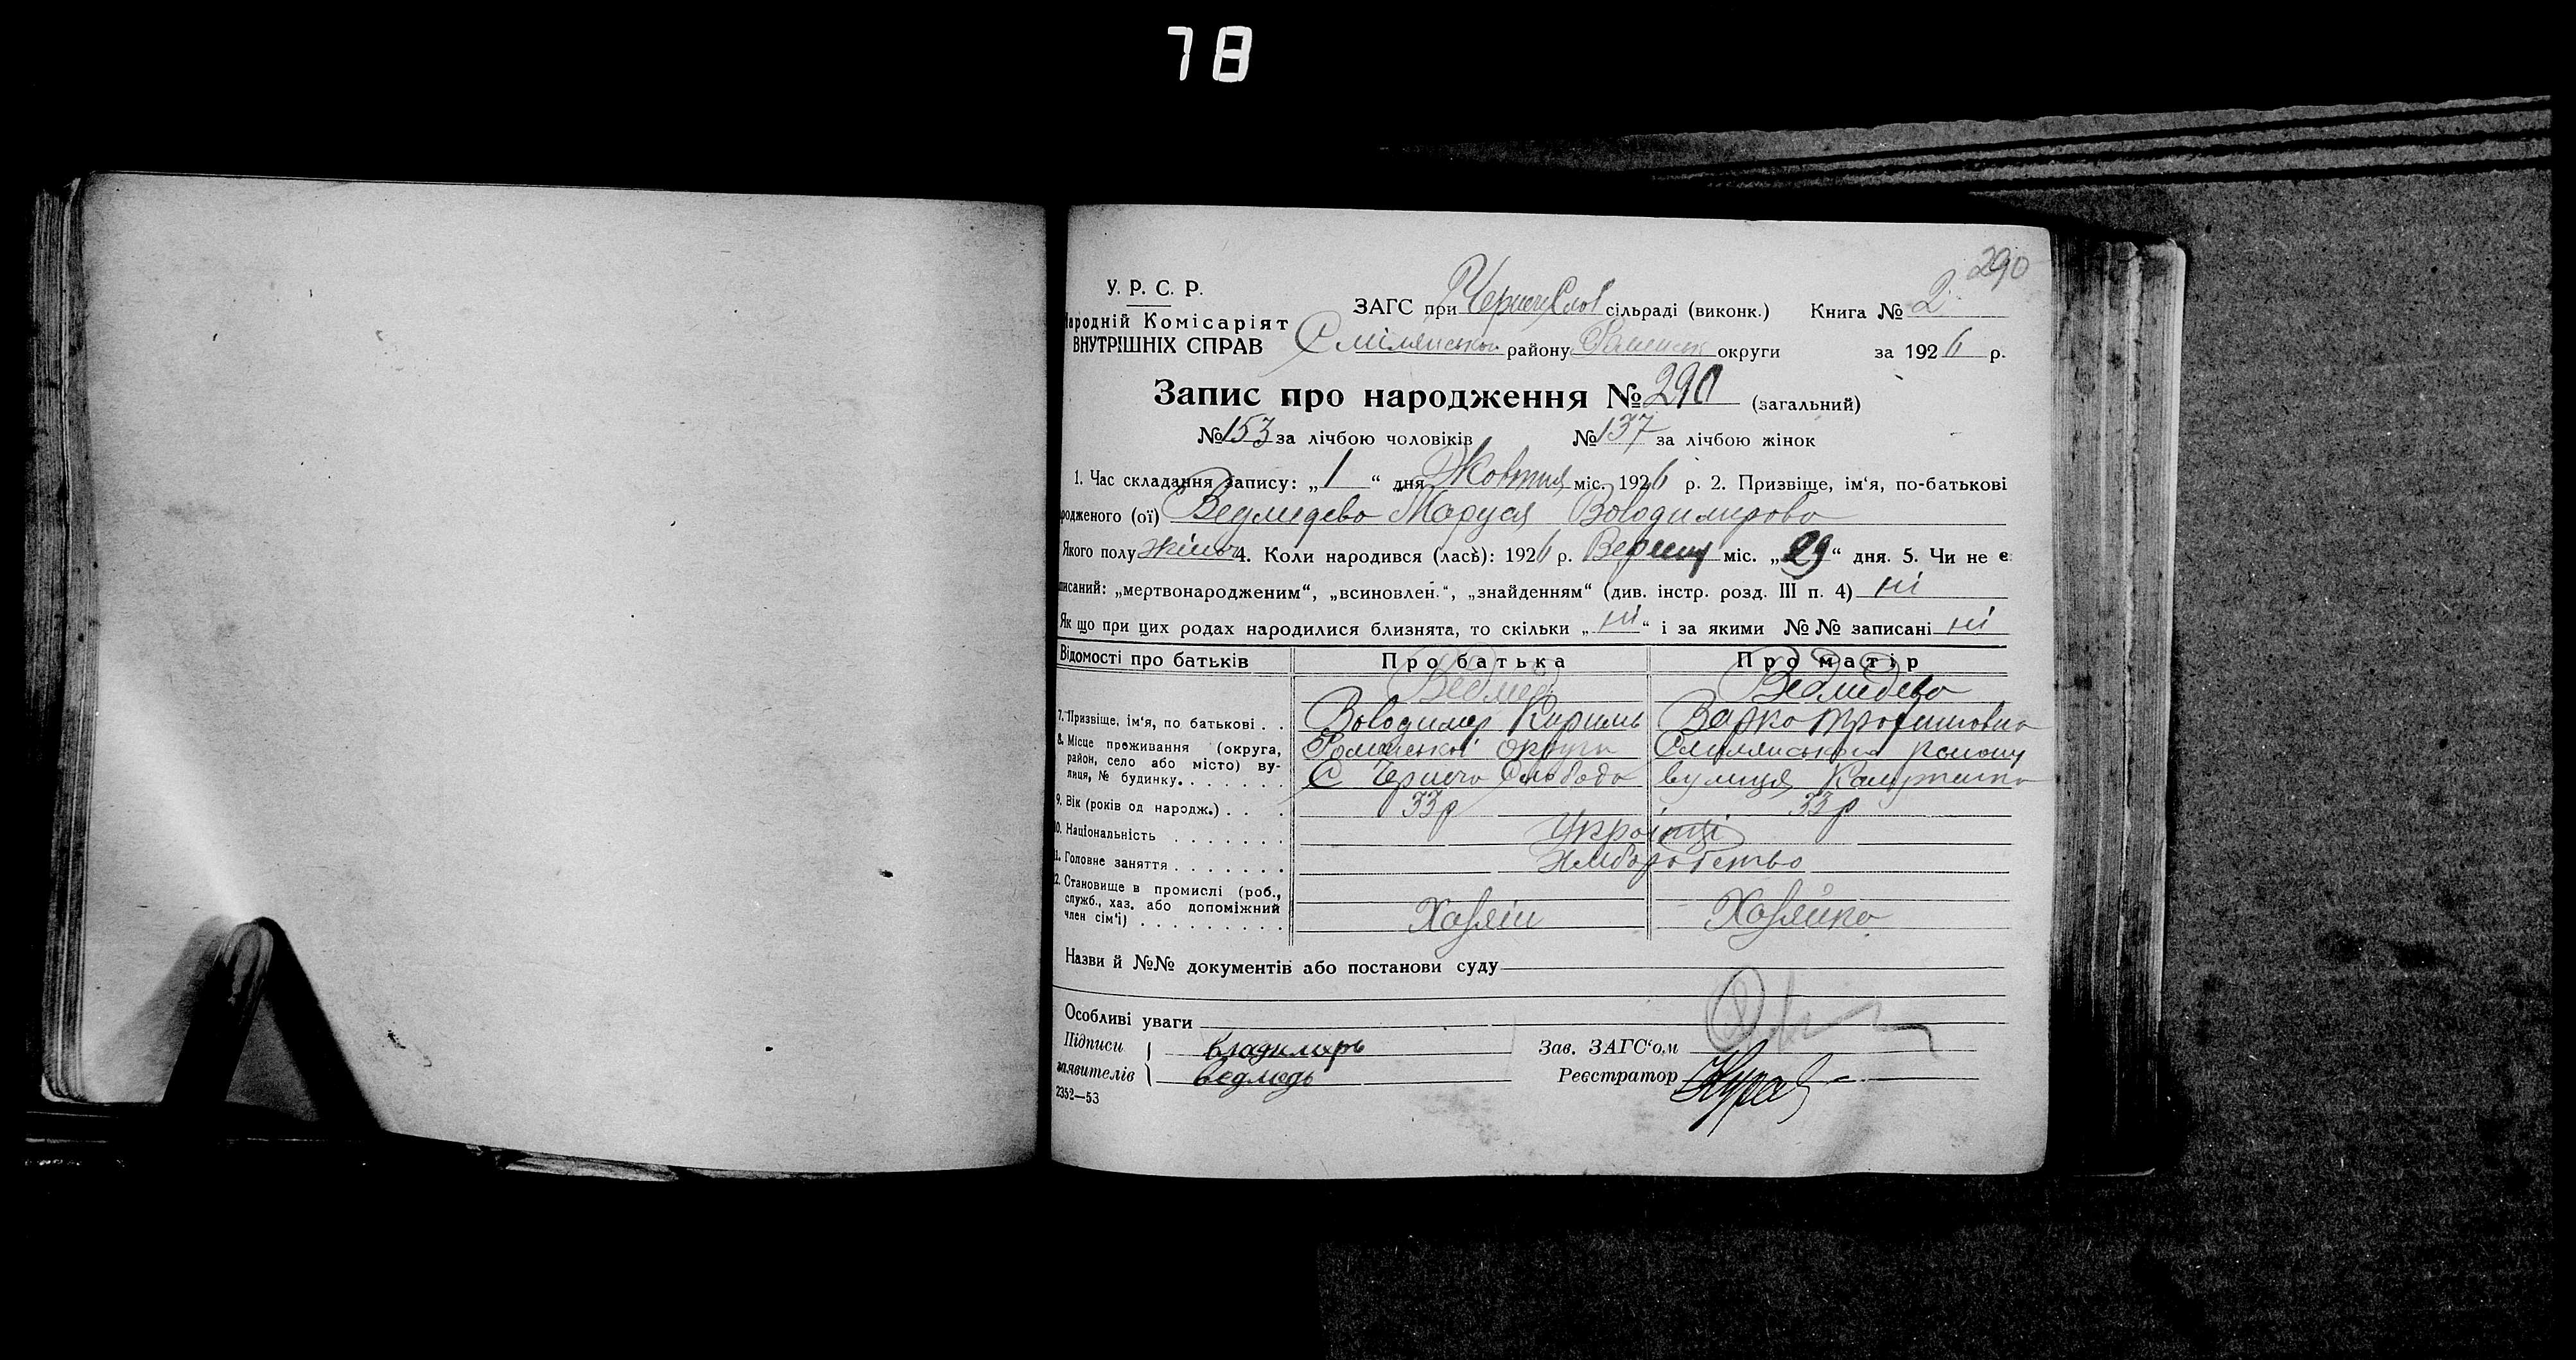 78
290
У. Р. С. Р.
Народній Комісаріят
ВНУТРІШНІХ СПРАВ
ЗАГС при сільраді (виконк.) Книга № 2
Смілянськ району округи за 1926 р.
Запис про народження № 290 (загальний)
№ 153 за лічбою чоловіків № 137 за лічбою жінок
1. Час складання запису: „1“ дня Жовтня міс. 1926 р. 2. Призвіще, ім‘я, по-батькові
родженого (ої) Ведмидева Маруся Володимирова
Якого полу жіноч 4. Коли народився (лась): 1926 р. Вересня міс. „29“ дня. 5. Чи не є
писаний: „мертвонародженим“, „всиновлен.“, „знайденням“ (див. інстр. розд. III п. 4) ні
Як що при цих родах народилися близнята, то скільки „ні“ і за якими №№ записані ні
Відомості про батьків Про батька Про матір
Ведмедь Ведмедева
7. Призвіще, ім‘я, по батькові . . Володимир Кирилів Варка Трофимовна
8. Місце проживання (округа, район, село або місто) вулиця, № будинку. Роменської округи Смілянського району
С Чернеча Слобода вулиця
9. Вік (років од народж.) . . . 33 р 33 р
10. Національність . . . . . . . Українці
11. Головне заняття . . . . . . . Хліборобство
12. Становище в промислі (роб., служб., хаз. або допоміжний член сім‘ї) . . . . . . . . . Хазяін Хазяйка
Назви й №№ документів або постанови суду
Особливі уваги
Підписи заявителів } владимиръ Зав. ЗАГС‘ом
ведмедь Реєстратор
2352—53